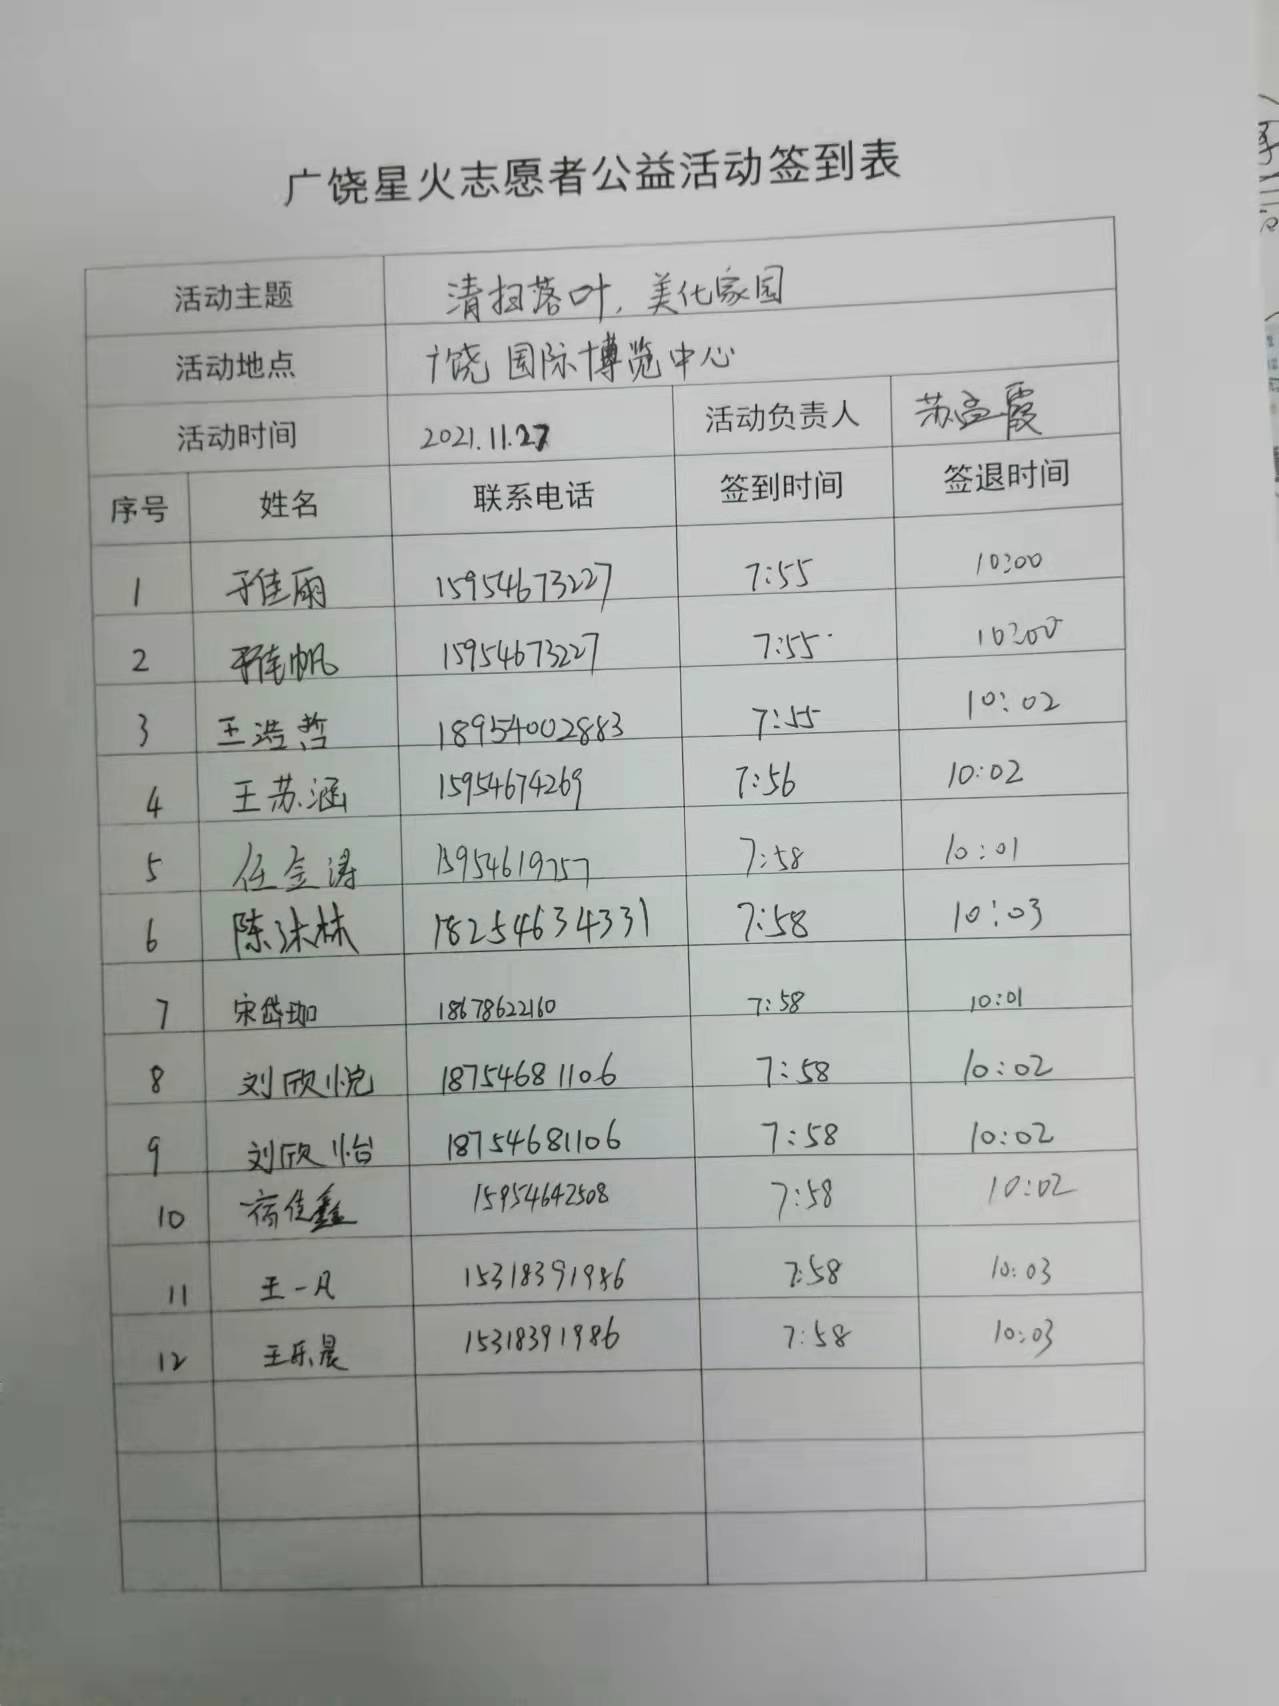 广饶星火志愿者公益活动签到表
活动主题 清扫落叶,美化家园
活动地点 广饶国际博览中心
活动时间 2021.11.27 活动负责人 苏孟霞
序号 姓名 联系电话 签到时间 签退时间
1 于佳雨 15954673227 7:55 10:00
2 于佳帆 15954673227 7:55 10:00
3 王浩哲 18954002883 7:55 10:02
4 王苏涵 15954674269 7:56 10:02
5 任金涛 15954619757 7:58 10:01
6 陈沐林 18254634331 7:58 10:03
7 宋岱珈 18678622160 7:58 10:01
8 刘欣悦 18754681106 7:58 10:02
9 刘欣怡 18754681106 7:58 10:02
10 佳鑫 15954642508 7:58 10:02
11 王一凡 15318391986 7:58 10:03
12 王乐晨 15318391986 7:58 10:03